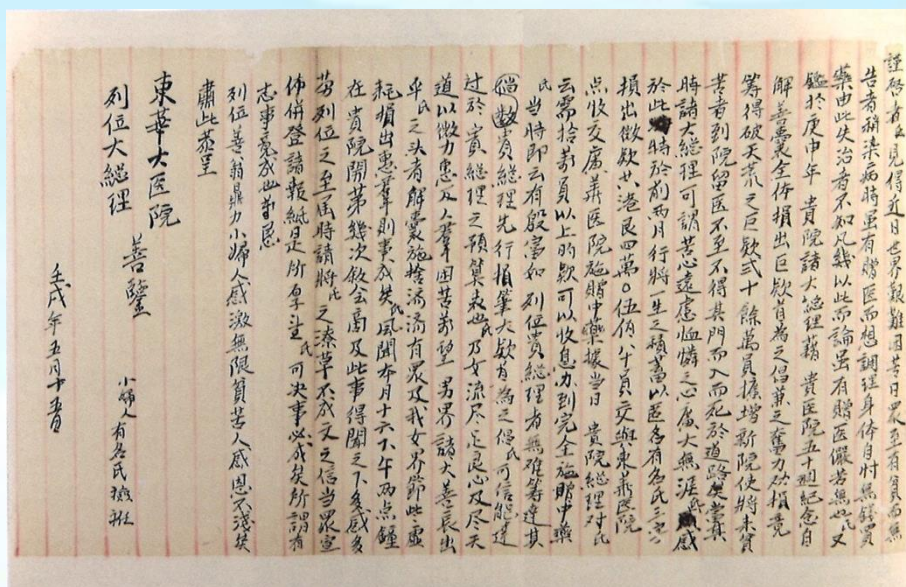 謹啓者氏見得近日世界艱難困苦日眾至有貧而無
告者稍染病時虽有贈医而想調理身体自忖無錢買
藥由此失治者不知凡幾以此而論虽有贈医儼若無也氏又
鑑於庚申年 貴院諸大總理藉 貴医院五十週紀念自
解善囊全体捐出巨欵首為之倡兼之奮力勸捐竟
籌得破天荒之巨欵弍十餘萬員擴增新院使將來貧
苦者到院留医不至不得其門而入而死於道路矣當其
時諸大總理可謂苦心遠慮恤憐之心廣大無涯氏感
於此時於前两月行將一生之積蓄以匿名有名氏三字
損出微欵廿八港艮四萬〇伍佰八十員交與東華医院
点收交廣華医院施贈中藥據当日 貴院總理对氏
云需拾萬員以上的欵可以收息办到完全施贈中藥
氏当時即云有殷富如 列位貴總理者無难籌達其
倘數貴總理先行損筆大欵首為之倡氏可信能達
过於 貴總理之預算表也氏乃女流尽吾良心及尽天
道以微力惠及人羣困苦翁望 男界諸大善長出
乎氏之头者解囊施捨濟濟有眾及我女界節此虛
耗損出惠羣則事成矣氏風聞本月十六下午两点鐘
在 貴院開第幾次敘会商及此事得聞之下多感多
劳列位之至届時請將氏之潦草不成文之信当眾宣
佈併登諸報紙是所厚望氏可决事必成矣所謂有
志事竟成也耑恳
列位善翁鼎力小婦人感激無限貧苦人感恩不淺矣
肅此恭呈
東華大医院
列位大總理 善鑒
小婦人有名氏襝衽
壬戌年五月十五日